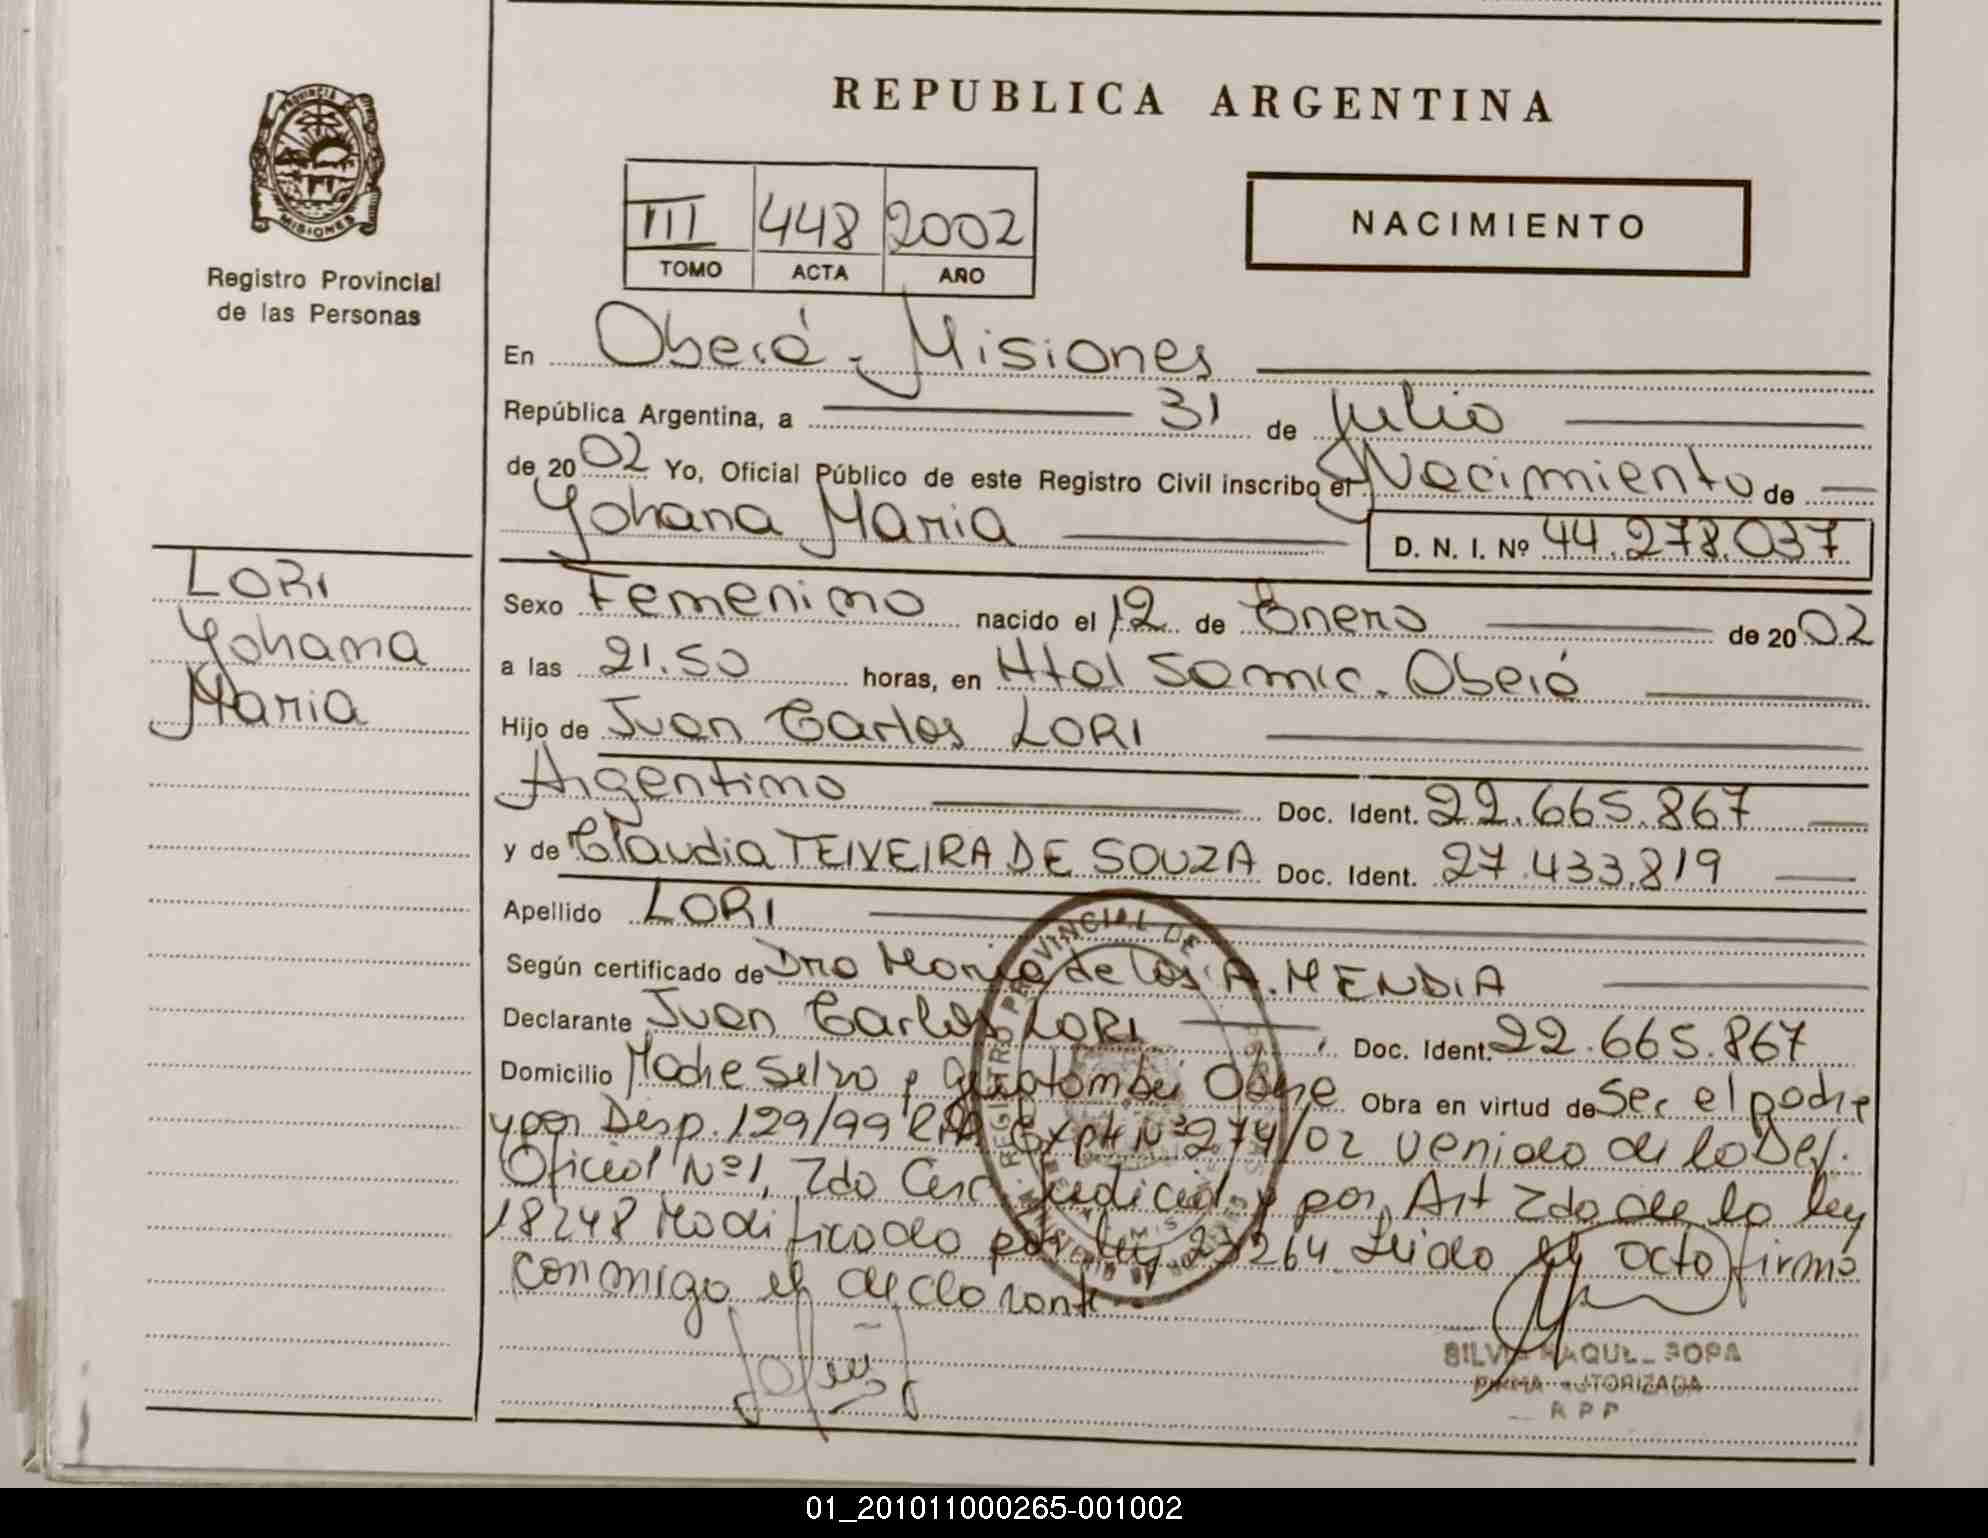 REPUBLICA ARGENTINA
PROVINCIA DE
MISIONES
Registro Provincial
de las Personas
III 448 2002
TOMO ACTA AÑO
NACIMIENTO
En Oberá - Misiones
República Argentina, a 31 de Julio
de 2002 Yo, Oficial Público de este Registro Civil inscribo el Nacimiento de
Yohana Maria D. N. I. Nº 44.278.037
LORI
Yohana
Maria
Sexo Femenino nacido el 12 de Enero de 2002
a las 21.50 horas, en Htal Samic. Oberá
Hijo de Juan Carlos LORI
Argentino Doc. Ident. 22.665.867
y de Claudia TEIVEIRA DE SOUZA Doc. Ident. 27.433.819
Apellido LORI
Según certificado de Dra Maria de los A. MENDIA
Declarante Juan Carlos LORI, Doc. Ident. 22.665.867
Domicilio Madre Selva y Obra en virtud de Ser el padre
y por Disp. 129/99 Expte Nº 274/02 venido de la Def.
Oficial Nº 1, 2do Circ. Judicial y por Art 2do de la ley
18248 Modificado por ley 23264 Leido el acta firma
conmigo el declarante
REGISTRO PROVINCIAL DE
MINISTERIO DE GOBIERNO
SILVIA RAQUEL SOPA
FIRMA AUTORIZADA
R P P
01_201011000265-001002